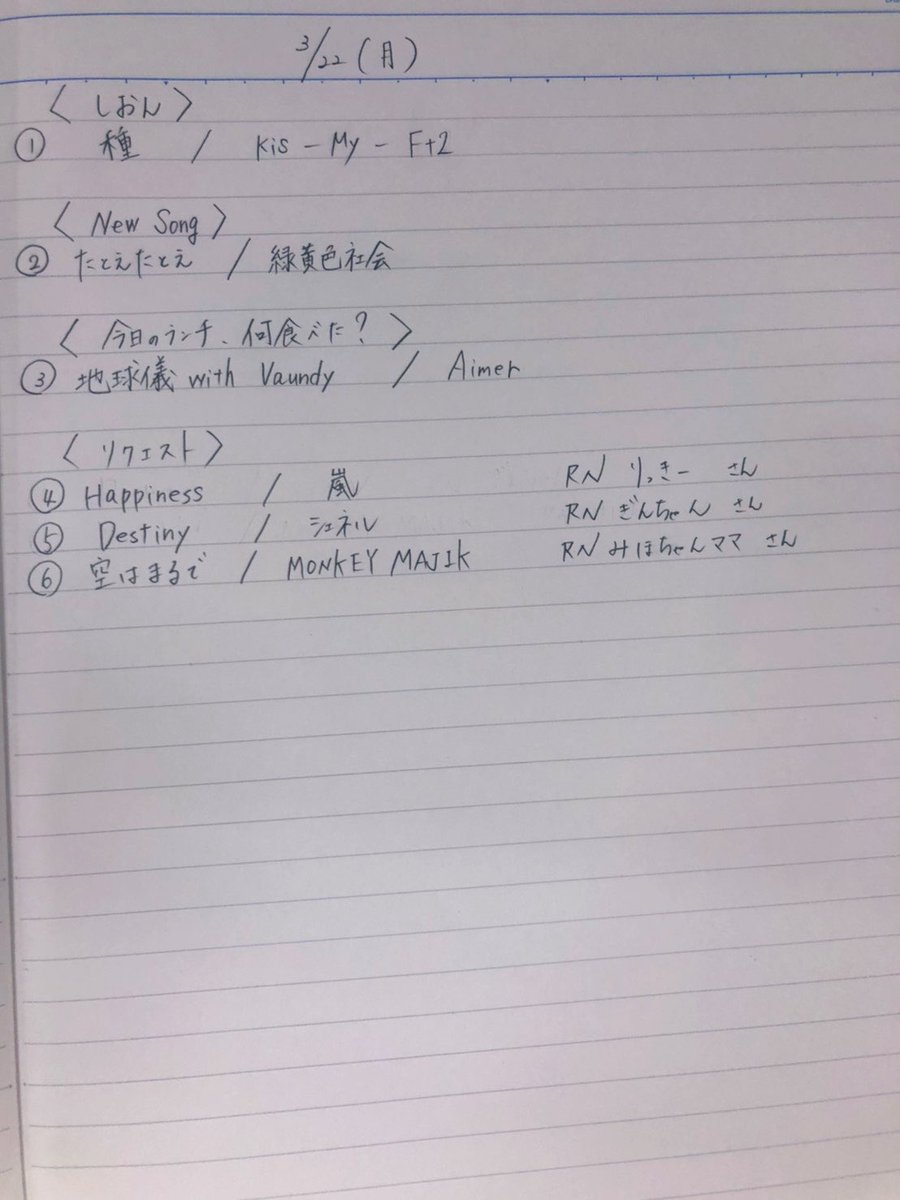 3/22(月)
〈 しおん 〉
① 種 / Kis-My-Ft2
〈 New Song 〉
② たとえたとえ / 緑黄色社会
〈 今日のランチ、何食べた? 〉
③ 地球儀 with Vaundy / Aimer
〈 リクエスト 〉
④ Happiness / 嵐 RN りっきー さん
⑤ Destiny / シェネル RN ぎんちゃん さん
⑥ 空はまるで / MONKEY MAJIK RN みほちゃんママ さん